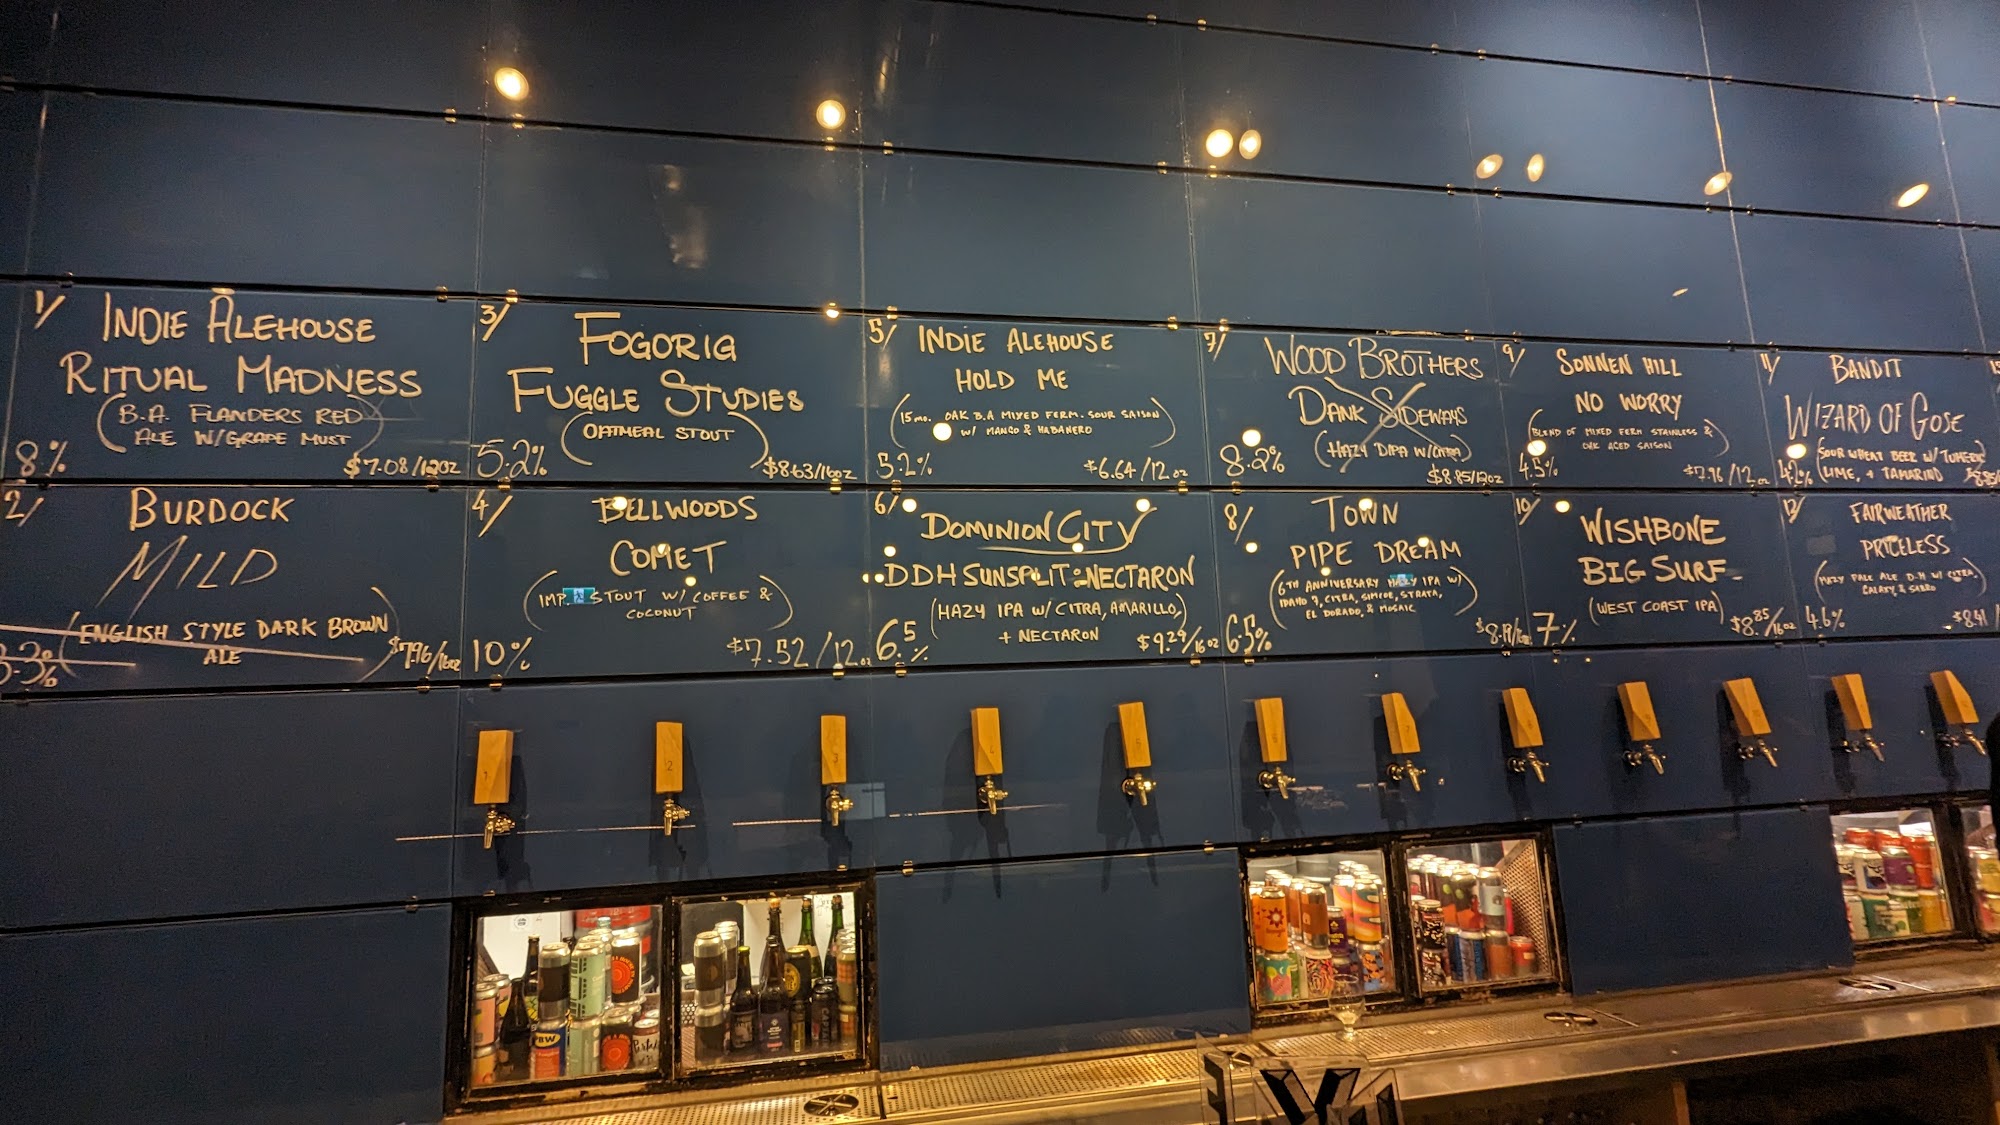 1/
INDIE ALEHOUSE
RITUAL MADNESS
(B.A. FLANDERS RED
ALE W/GRAPE MUST)
8%
$7.08/12oz
2/
BURDOCK
MILD
(ENGLISH STYLE DARK BROWN
ALE)
3.3%
$7.96/16oz
3/
FOGORIG
FUGGLE STUDIES
(OATMEAL STOUT)
5.2%
$8.63/16oz
4/
BELLWOODS
COMET
(IMP. STOUT W/ COFFEE &
COCONUT)
10%
$7.52/12oz
5/
INDIE ALEHOUSE
HOLD ME
(15 mo. OAK B.A MIXED FERM. SOUR SAISON
W/ MANGO & HABANERO)
5.2%
$6.64/12oz
6/
DOMINION CITY
DDH SUNSPLIT:NECTARON
(HAZY IPA W/ CITRA, AMARILLO,
+ NECTARON)
6.5%
$9.29/16oz
7/
WOOD BROTHERS
DANK SIDEWAYS
(HAZY DIPA W/CITRA)
8.2%
$8.85/12oz
8/
TOWN
PIPE DREAM
(6TH ANNIVERSARY HAZY IPA W/
IDAHO 7, CITRA, SIMCOE, STRATA,
EL DORADO, & MOSAIC)
6.5%
9/
SONNEN HILL
NO WORRY
(BLEND OF MIXED FERM STAINLESS &
OAK AGED SAISON)
4.5%
$7.96/12oz
10/
WISHBONE
BIG SURF
(WEST COAST IPA)
7%
$8.85/16oz
11/
BANDIT
WIZARD OF GOSE
(SOUR WHEAT BEER W/ TUMERIC
LIME, + TAMARIND
4.2%
12/
FAIRWEATHER
PRICELESS
(HAZY PALE ALE D-H W/ CITRA,
GALAXY, & SABRO)
4.6%
$8.41/
1
2
3